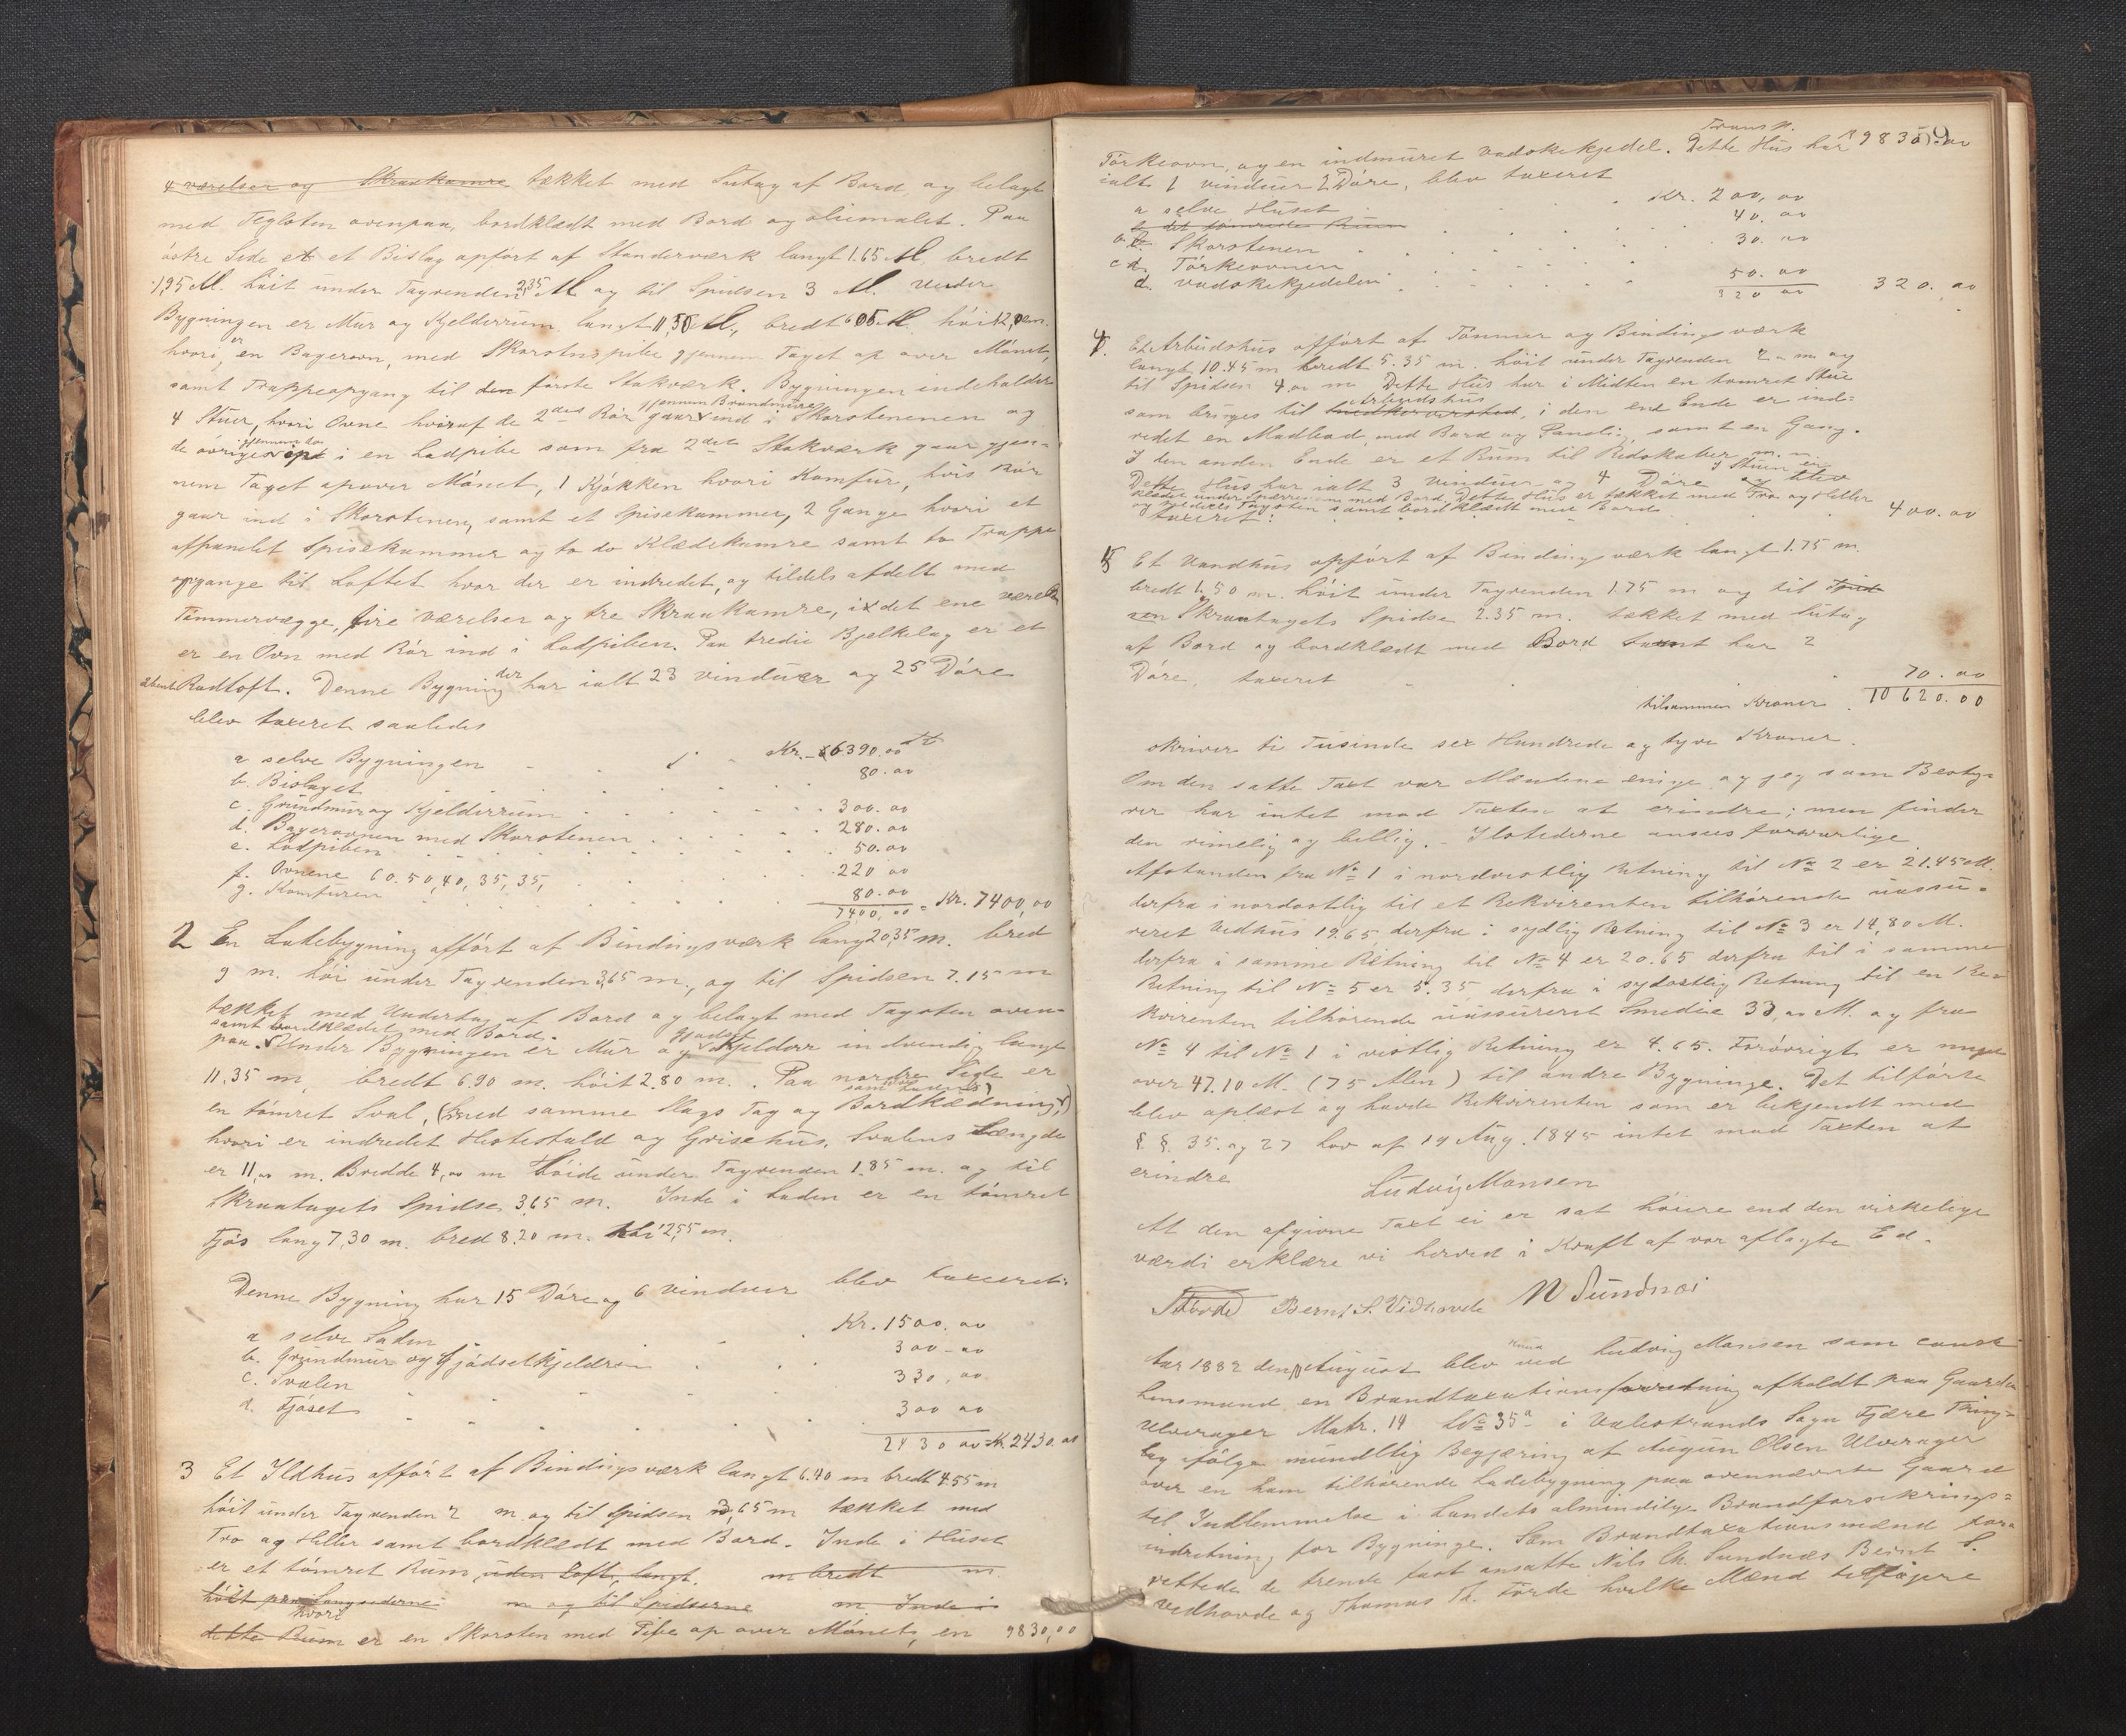 4 værelser og Skraakamre tækket med Sutag af Bord og belagt
med Teglsten ovenpaa, bordklædt med Bord og oliemalet. Paa
östre Side et et Bislag opfört af Standerværk langt 1.65 M. bredt
1,95 M. höit under Tagrenden 2,35 M og til Spidsen 3 M. Under
Bygningen er Mur og Kjelderrum langt 11,50 M., bredt 6 05 M. höit 2,0 em.
hvori er en Bagerovn, med Skorstenspibe gjennem Taget op over Mönet,
samt Trappeopgang til den förste Stokværk. Bygningen indeholder
4 Stuer, hvori Ovne hvoraf de 2det Rör gaar gjennem Brandmure ind i Skorstenen og
de övriges gjennem do op i en Ladpibe som fra 2det Stokværk gaar gjen-
nem Taget opover Mönet, 1 Kjökken hvori Komfur, hvis Rör
gaar ind i Skorstenen, samt et Spisekammer, 2 Gange hvori et
afpanelet Spisekammer og to do Klædekamre samt to Trappe
opgange til Loftet hvor der er indredet, og tildels afdelt med
Tömmervægge, fire værelser og tre Skraakamre, i det ene værelse
er en Ovn med Rör ind i Ladpiben. Paa tredie Bjelkelag er et
aabent Rodloft. Denne Bygning der har ialt 23 vinduer og 25 Döre
blev taxeret saaledes
a selve Bygningen Kr. 6390.00
b. Bislaget 80.00
c. Grundmur og Kjelderrum 300.00
d. Bagerovnen med Skorstenen 280.00
e. Ladpiben 50.00
f. Ovnene 60. 50, 40, 35, 35, 220 00
g. Komfuren 80.00
7400,00 = Kr. 7400,00
2 En Ladebygning opfört af Bindingsværk lang 20,35 m. bred
9 m. höi under Tagrenden 3,65 m., og til Spidsen 7.15 m
tækket med Undertag af Bord og belagt med Tagsten oven-
samt bordklædet med Bord.
paa. Under Bygningen er Mur og Gjödsel Kjelder indvendig langt
11.35 m. bredt 6.90 m. höit 2.80 m. Paa nordre Side er
en tömret Sval, (med samme Slags Tag og Bordklædning)
hvori er indredet Hestestald og Grisehus. Svalens Længde
er 11,00 m. Bredde 4,00 m Höide under Tagrenden 1.85 m. og til
Skraatagets Spidse 3,65 m. Inde i Laden er en tömret
Fjös lang 7,30 m. bred 8,20 m. höi 2,55 m.
Denne Bygning har 15 Döre og 6 vinduer blev taxeret:
a selve Laden Kr. 1500.00
b. Grundmur og Gjödselkjelderen 300-00
c. Svalen 330,00
d. Fjöset 300 00
2430 00 = Kr. 2430.00
3 Et Ildhus opfört af Bindingsværk langt 6.40 m bredt 4.55 m
höit under Tagrenden 2 m og til Spidsen 3,65 m tækket med
Tro og Heller samt bordklædt med Bord. Inde i Huset
er et tömret Rum uden Loft, langt m bredt m
höit paa Langsiderne m og til Spidserne m Inde i
dette Rum hvori er en Skorsten med Pibe op over Mönet, en 9830,00
Transp. Kr 9830.00
59
Törkeovn, og en indmuret vadskekjedel. Dette Hus har
ialt 1 vinduer 2 Döre, blev taxeret
a selve Huset Kr. 200,00
b det tömrede Rum 40.00
b. Skorstenen 30.00
c d. Törkeovnen
d. vadskekjedelen 50.00
320 00 320.00
4. Et Arbeidshus opfört af Tömmer og Bindingsværk
langt 10.45 m bredt 5.35 m. höit under Tagrenden 2 - m og
til Spidsen 4,00 m Dette Hus har i Midten en tömret Stue
som bruges til Arbeidshus, i den ene Ende er ind-
redet en Madbod, med Bord og Paneling samt en Gang.
I den anden Ende er et Rum til Redskaber m. m.
Dette Hus har ialt 3 vinduer og 4 Döre og blev
I Stuen er
klædt under Sperrerne med Bord. Dette Hus er tækket med Tro og Heller
og tildels Tagsten samt bordklædt med Bord
taxeret: 400.00
5 Et Vandhus opfört af Bindingsværk langt 1.75 m.
bredt 1.50 m. höit under Tagrenden 1.75 m og til Spid
sen Skraatagets Spidse 2.35 m. tækket med Sutag
af Bord og bordklædt med Bord samt har 2
Döre, taxeret 70.00
tilsammen Kroner 10620.00
skriver ti Tusinde sex Hundrede og tyve Kroner.
Om den satte Taxt var Mændene enige og jeg som Besty-
rer har intet mod Taxten at erindre; men finder
den rimelig og billig. - Ildstederne ansees forsvarlige
Afstanden fra No 1 i nordvestlig Retning til No 2 er 21.45 M.
derfra i nordostlig til et Rekvirenten tilhörende uassu-
reret Vedhus 19.65 derfra i sydlig Retning til No 3 er 14,80 M.
derfra i samme Retning til No 4 er 20.65 derfra til i samme
Retning til No 5 er 5.35 derfra i sydostlig Retning til en Rek
kvirenten tilhörende uassureret Smedie 33,00 M. og fra
No 4 til No 1 i vestlig Retning er 4.65. Foröxrigt er
over 47.10 M. (75 Alen) til andre Bygninge. Det tilförte
blev oplæst og havde Rekvirenten som er bekjendt med
§. §. 35. og 27 Lov af 19 Aug. 1845 intet mod Taxten at
erindre
Ludvig Monsen
At den afgivne Taxt ei er sat höiere end den virkelige
værdi erklære vi herved i Kraft af vor aflagte Ed.
TTförde Bernt S. Vidhovde N Sundnæs
Aar 1882 den August blev ved Ludvig Monsen som const
Lensmand en Brandtaxationsforretning afholdt paa Gaarden
Ulverager Matr. 14 LNo 35a i Valestrands Sogn Fjære Thing-
lag ifölge mundtlig Begjæring af Augun Olsen Ulverager
over en ham tilhörende Ladebygning paa ovennævnte Gaard
til Indlemmelse i Landets almindelige Brandforsikrings-
indretning for Bygninge. Som Brandtaxationsmænd fore
rettede de trende fast ansatte Nils Ch. Sundnæs, Bernt S.
Vedhovde og Thomas Th. Förde hvilke Mænd tilföiere